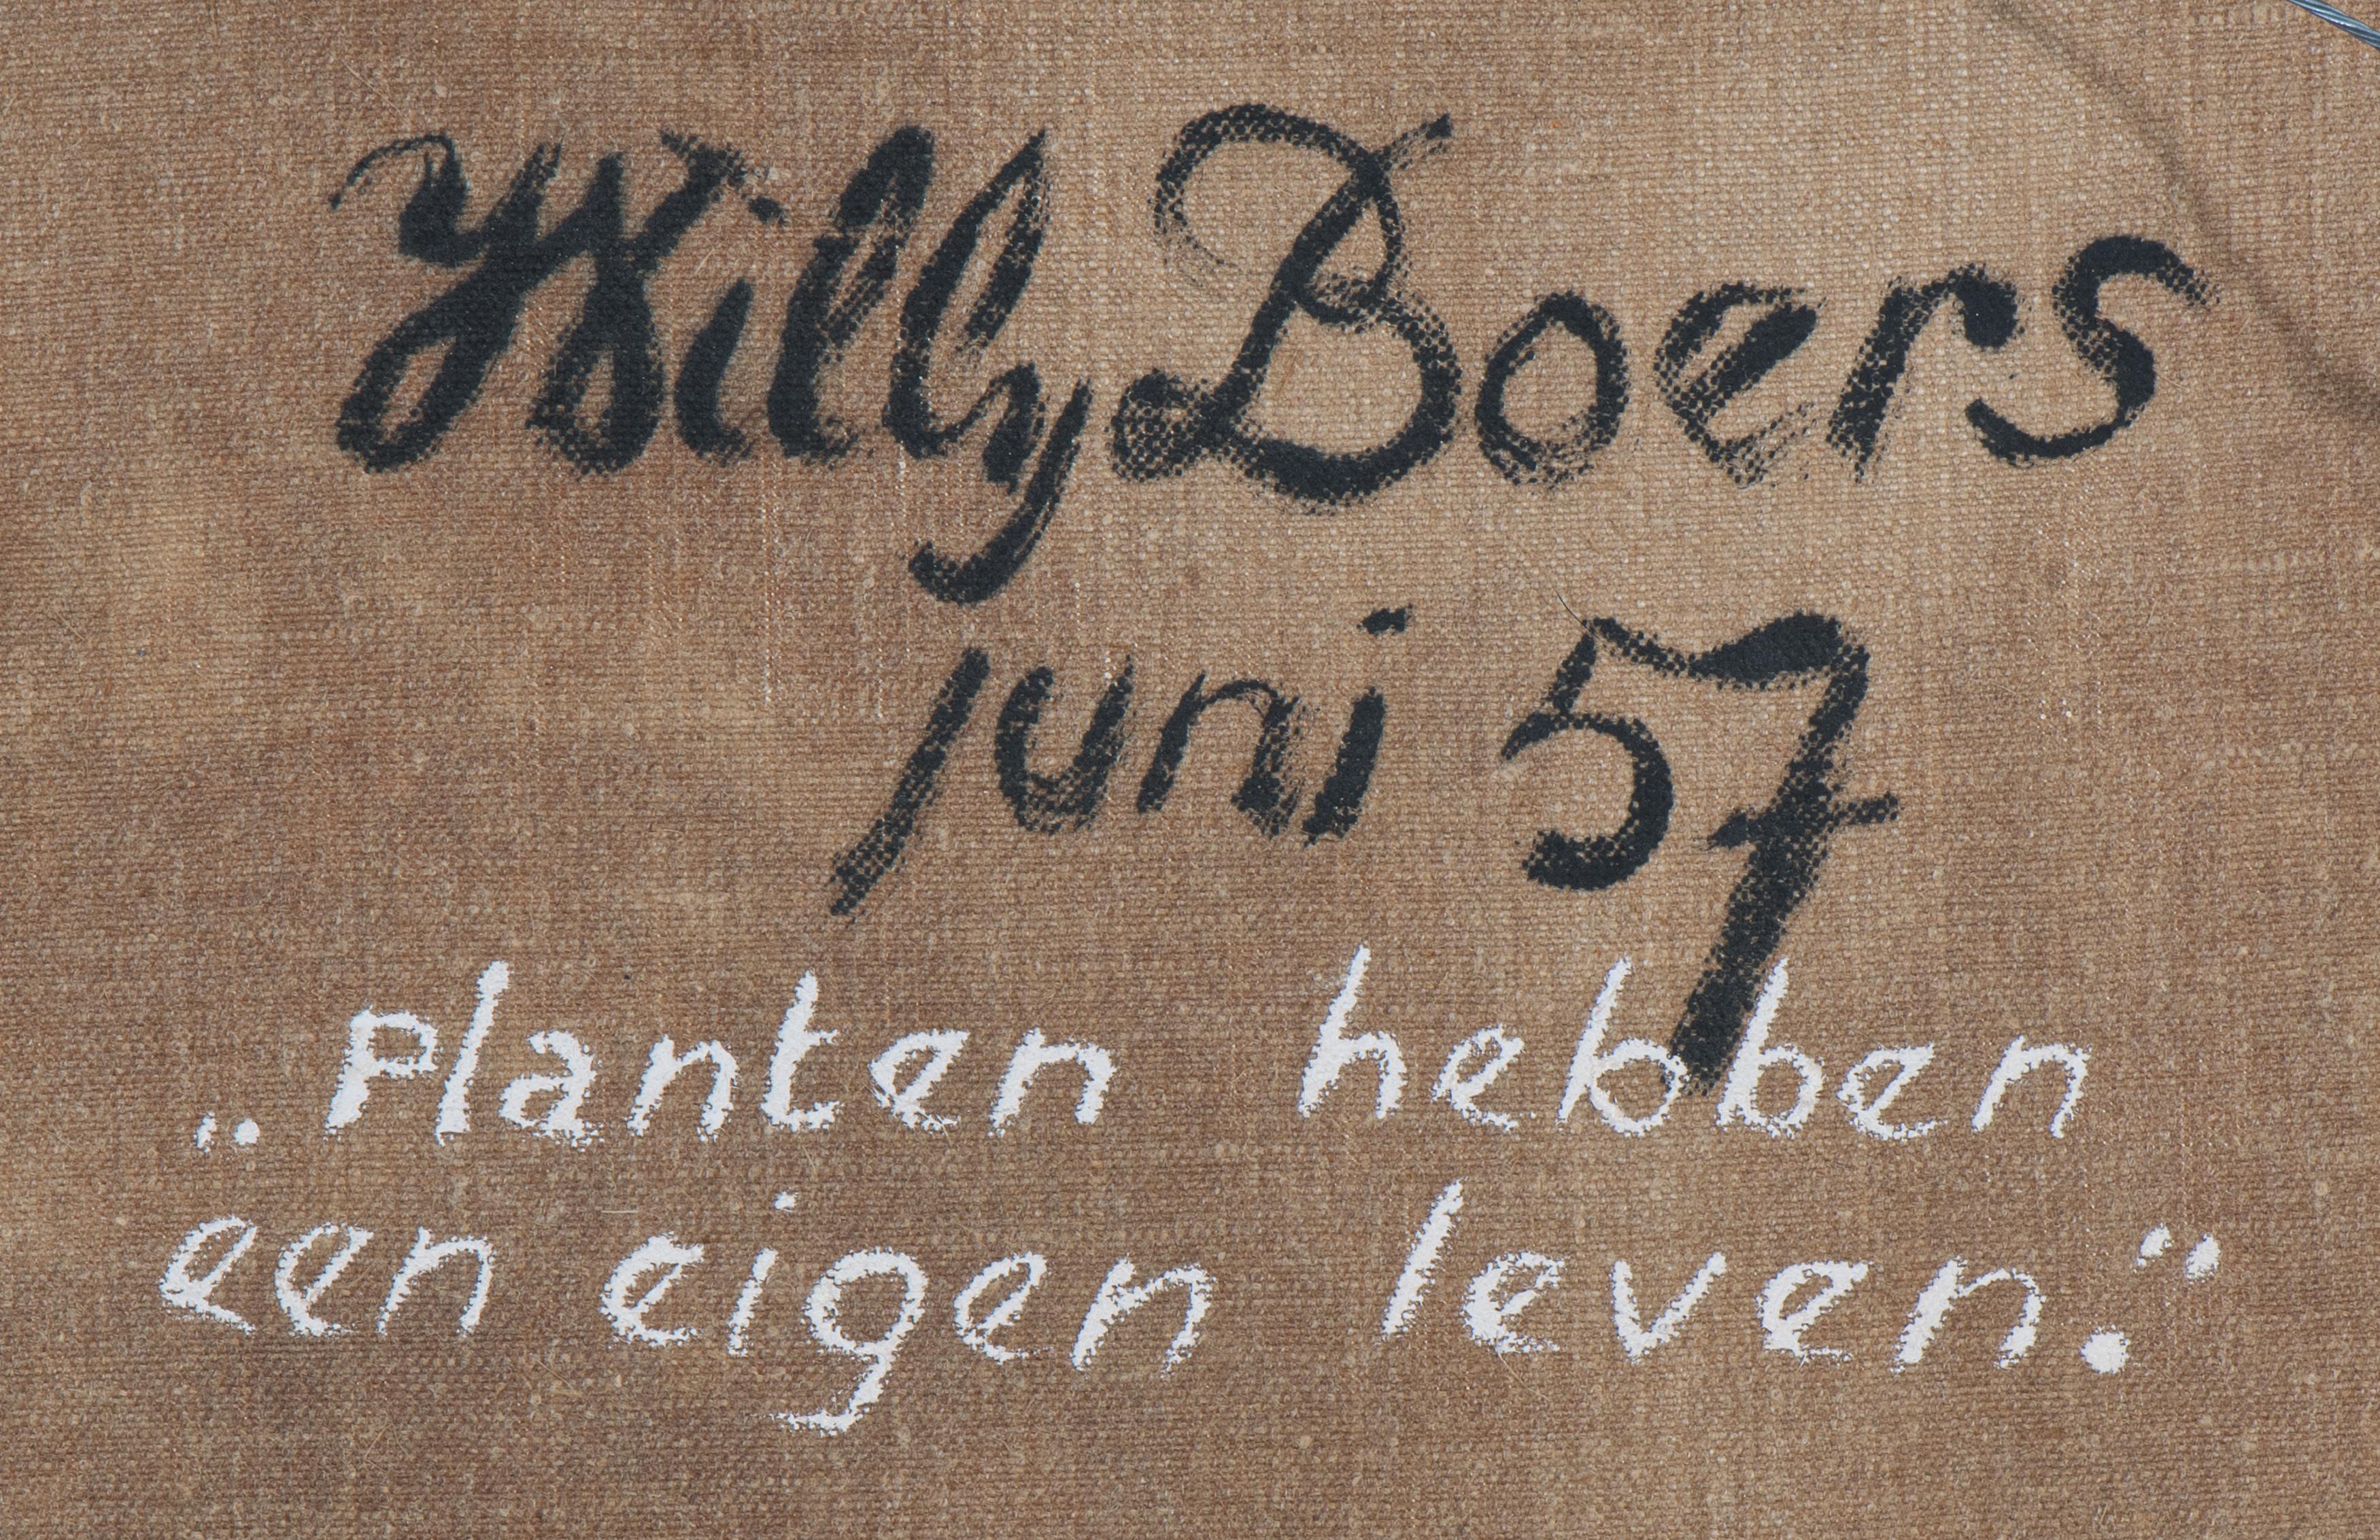 Willy Boers
juni 57
„Planten hebben
een eigen leven.”